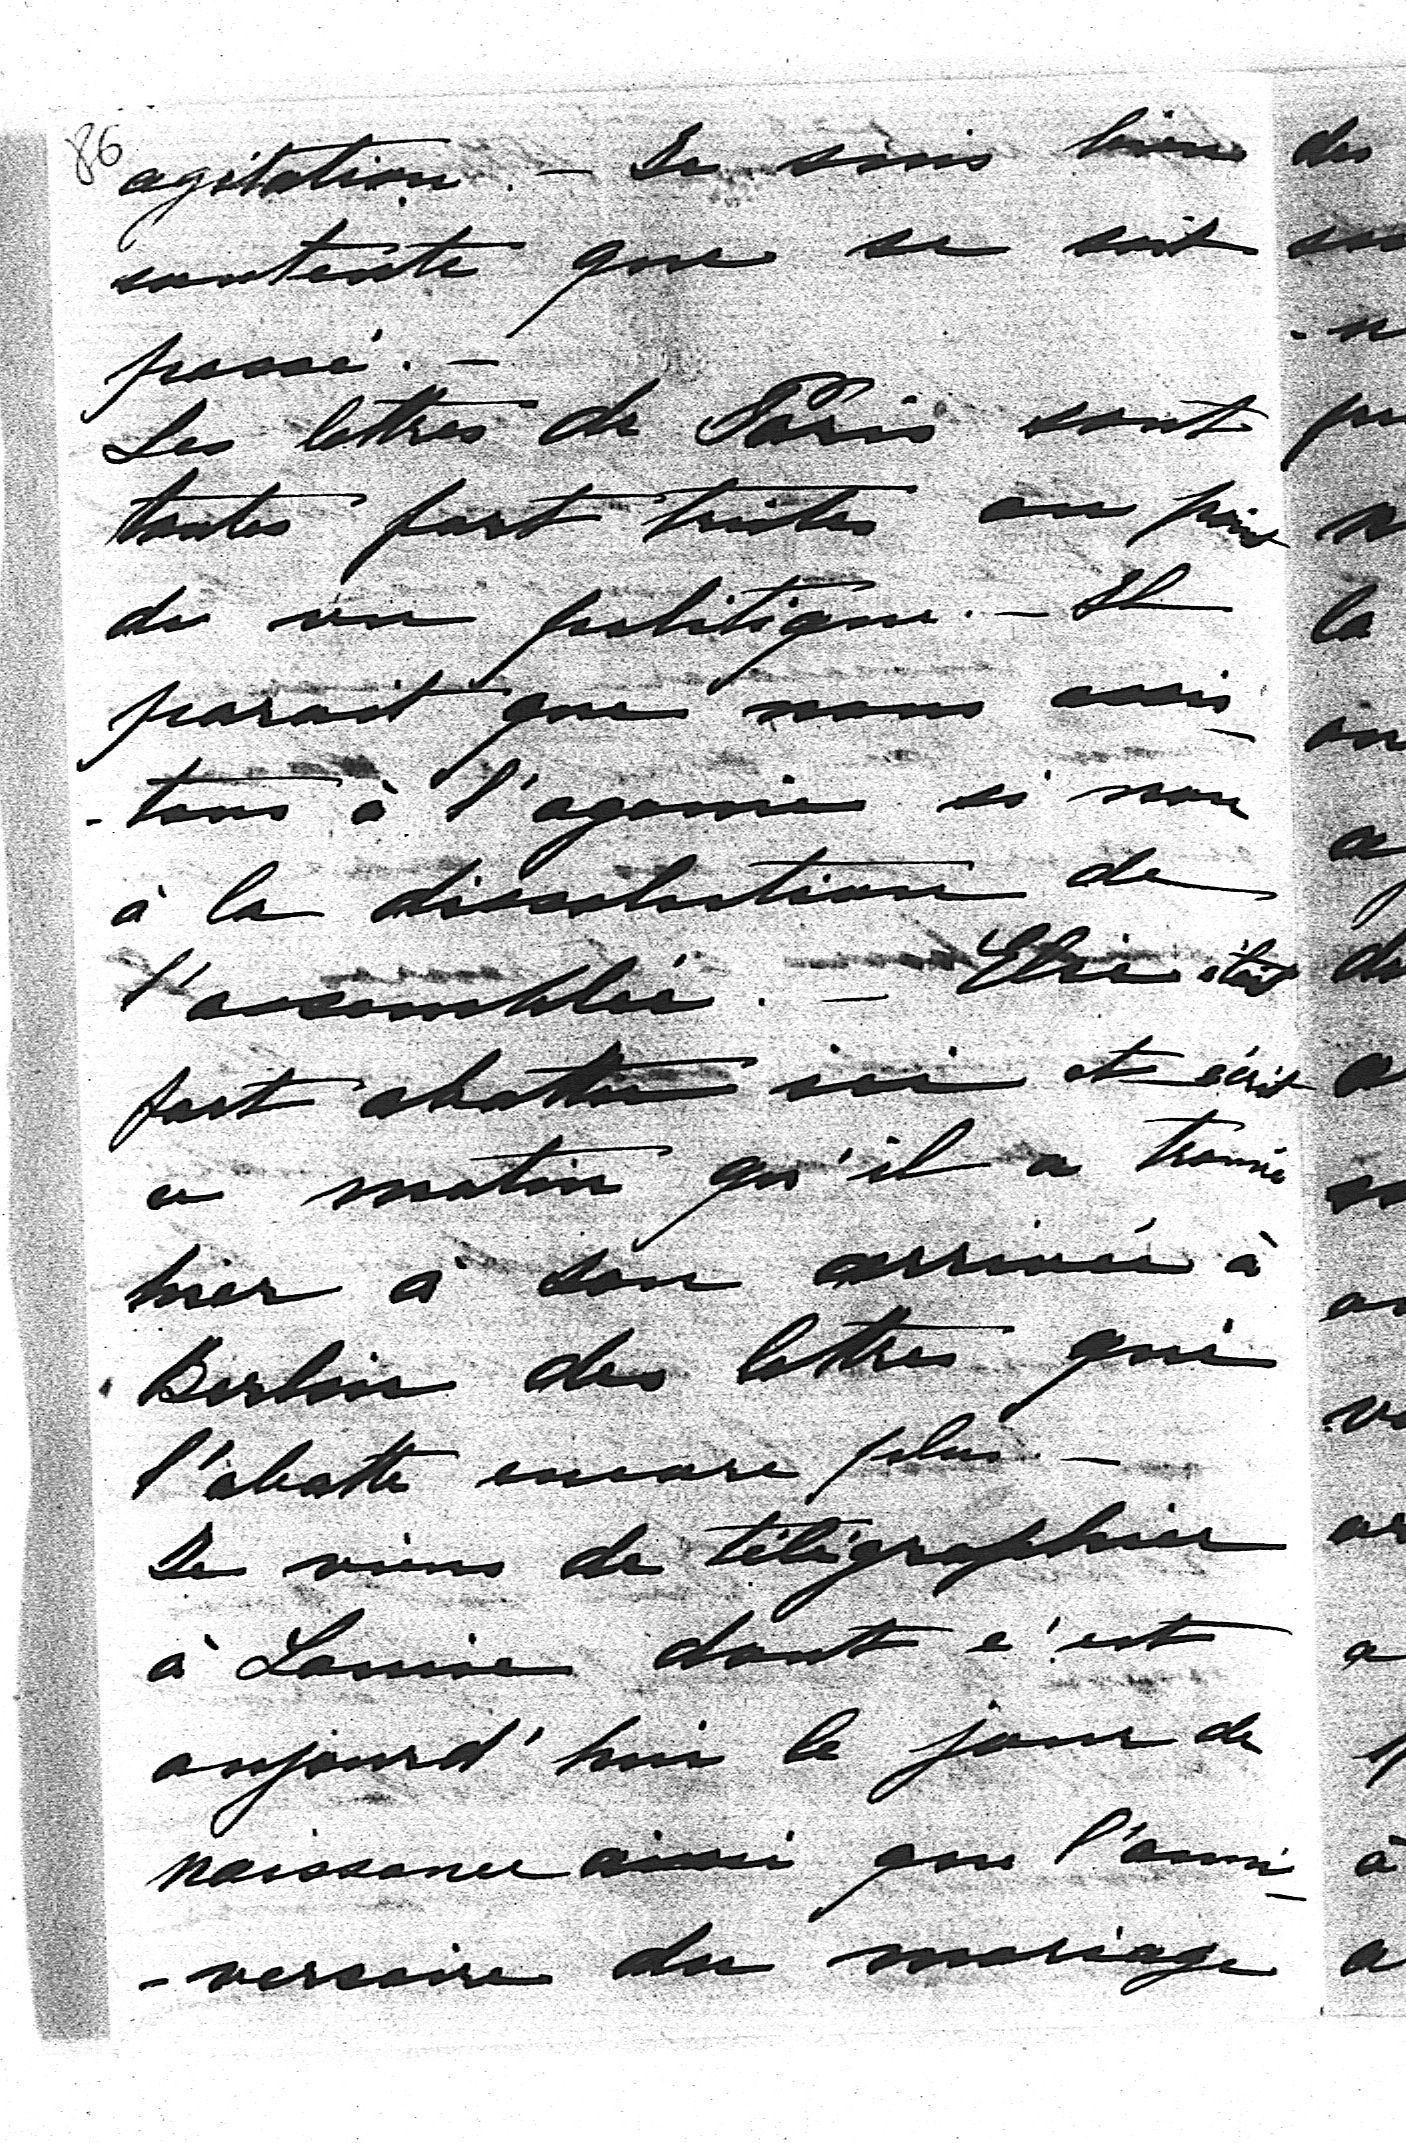 86
agitation. — Je suis bien
contente que ce soit
passé. —
Les lettres de Paris sont
toutes fort tristes au point
de vue politique. — Il
parait que nous assis-
-tons à l'agonie si non
à la dissolution de
l'assemblée. — Elie était
fort abattu ici et écrit
ce matin qu'il a trouvé
hier à son arrivée à
Berlin des lettres qui
l'abatte encore plus —
Je viens de télégraphier
à Louise dont c'est
aujourd'hui le jour de
naissance ainsi que l'anni-
-versaire du mariage